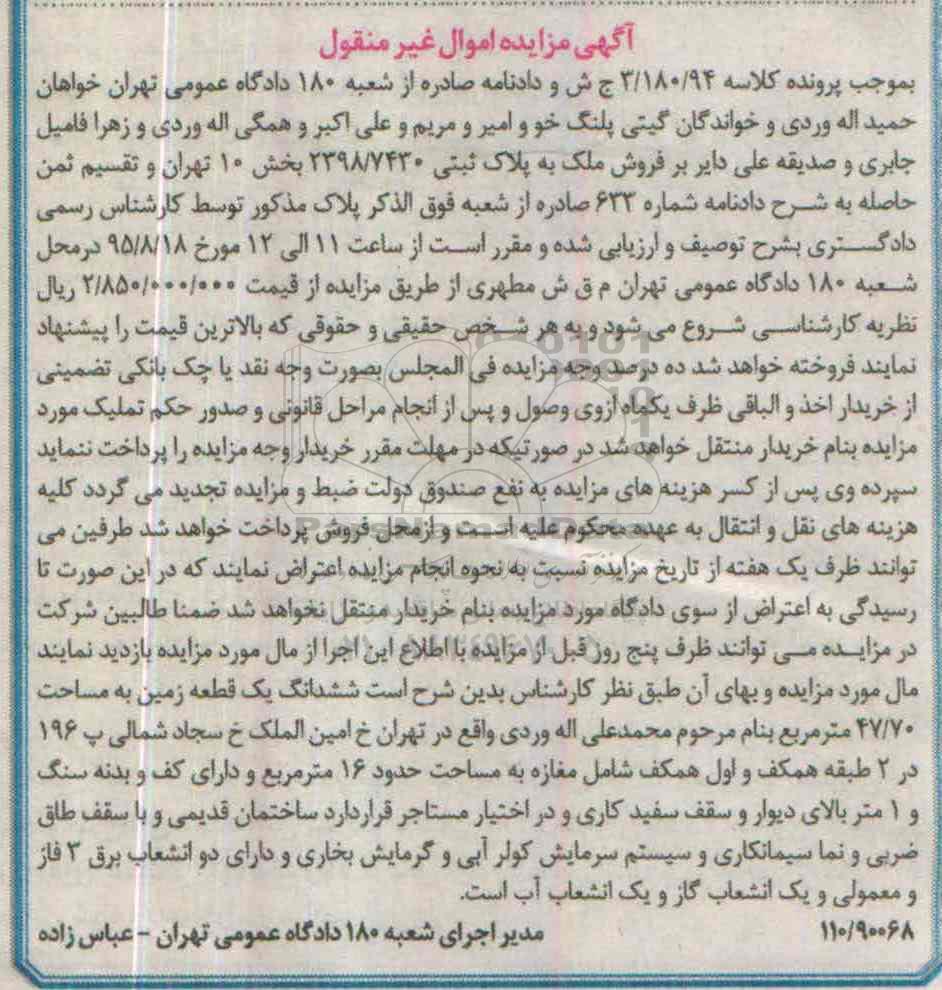 آگهی مزایده اموال غیر منقول
بموجب پرونده کلاسه ۳/۱۸۰/۹۴ ج ش و دادنامه صادره از شعبه ۱۸۰ دادگاه عمومی تهران خواهان
حمید اله وردی و خواندگان گیتی پلنگ خو و امیر و مریم و علی اکبر و همگی اله وردی و زهرا فامیل
جابری و صدیقه علی دایر بر فروش ملک به پلاک ثبتی ۲۳۹۸/۷۴۳۰ بخش ۱۰ تهران و تقسیم ثمن
حاصله به شرح دادنامه شماره ۶۳۳ صادره از شعبه فوق الذکر پلاک مذکور توسط کارشناس رسمی
دادگستری بشرح توصیف و ارزیابی شده و مقرر است از ساعت ۱۱ الی ۱۲ مورخ ۹۵/۸/۱۸ درمحل
شعبه ۱۸۰ دادگاه عمومی تهران م ق ش مطهری از طریق مزایده از قیمت ۲/۸۵۰/۰۰۰/۰۰۰ ریال
نظریه کارشناسی شروع می شود و به هر شخص حقیقی و حقوقی که بالاترین قیمت را پیشنهاد
نمایند فروخته خواهد شد ده درصد وجه مزایده فی المجلس بصورت وجه نقد یا چک بانکی تضمینی
از خریدار اخذ و الباقی ظرف یکماه ازوی وصول و پس از انجام مراحل قانونی و صدور حکم تملیک مورد
مزایده بنام خریدار منتقل خواهد شد در صورتیکه در مهلت مقرر خریدار وجه مزایده را پرداخت ننماید
سپرده وی پس از کسر هزینه های مزایده به نفع صندوق دولت ضبط و مزایده تجدید می گردد کلیه
هزینه های نقل و انتقال به عهده محکوم علیه است و ازمحل فروش پرداخت خواهد شد طرفین می
توانند ظرف یک هفته از تاریخ مزایده نسبت به نحوه انجام مزایده اعتراض نمایند که در این صورت تا
رسیدگی به اعتراض از سوی دادگاه مورد مزایده بنام خریدار منتقل نخواهد شد ضمنا طالبین شرکت
در مزایده می توانند ظرف پنج روز قبل از مزایده با اطلاع این اجرا از مال مورد مزایده بازدید نمایند
مال مورد مزایده و بهای آن طبق نظر کارشناس بدین شرح است ششدانگ یک قطعه زمین به مساحت
۴۷/۷۰ مترمربع بنام مرحوم محمدعلی اله وردی واقع در تهران خ امین الملک خ سجاد شمالی پ ۱۹۶
در ۲ طبقه همکف و اول همکف شامل مغازه به مساحت حدود ۱۶ مترمربع و دارای کف و بدنه سنگ
و ۱ متر بالای دیوار و سقف سفید کاری و در اختیار مستاجر قراردارد ساختمان قدیمی و با سقف طاق
ضربی و نما سیمانکاری و سیستم سرمایش کولر آبی و گرمایش بخاری و دارای دو انشعاب برق ۳ فاز
و معمولی و یک انشعاب گاز و یک انشعاب آب است.
۱۱۰/۹۰۰۶۸ مدیر اجرای شعبه ۱۸۰ دادگاه عمومی تهران - عباس زاده